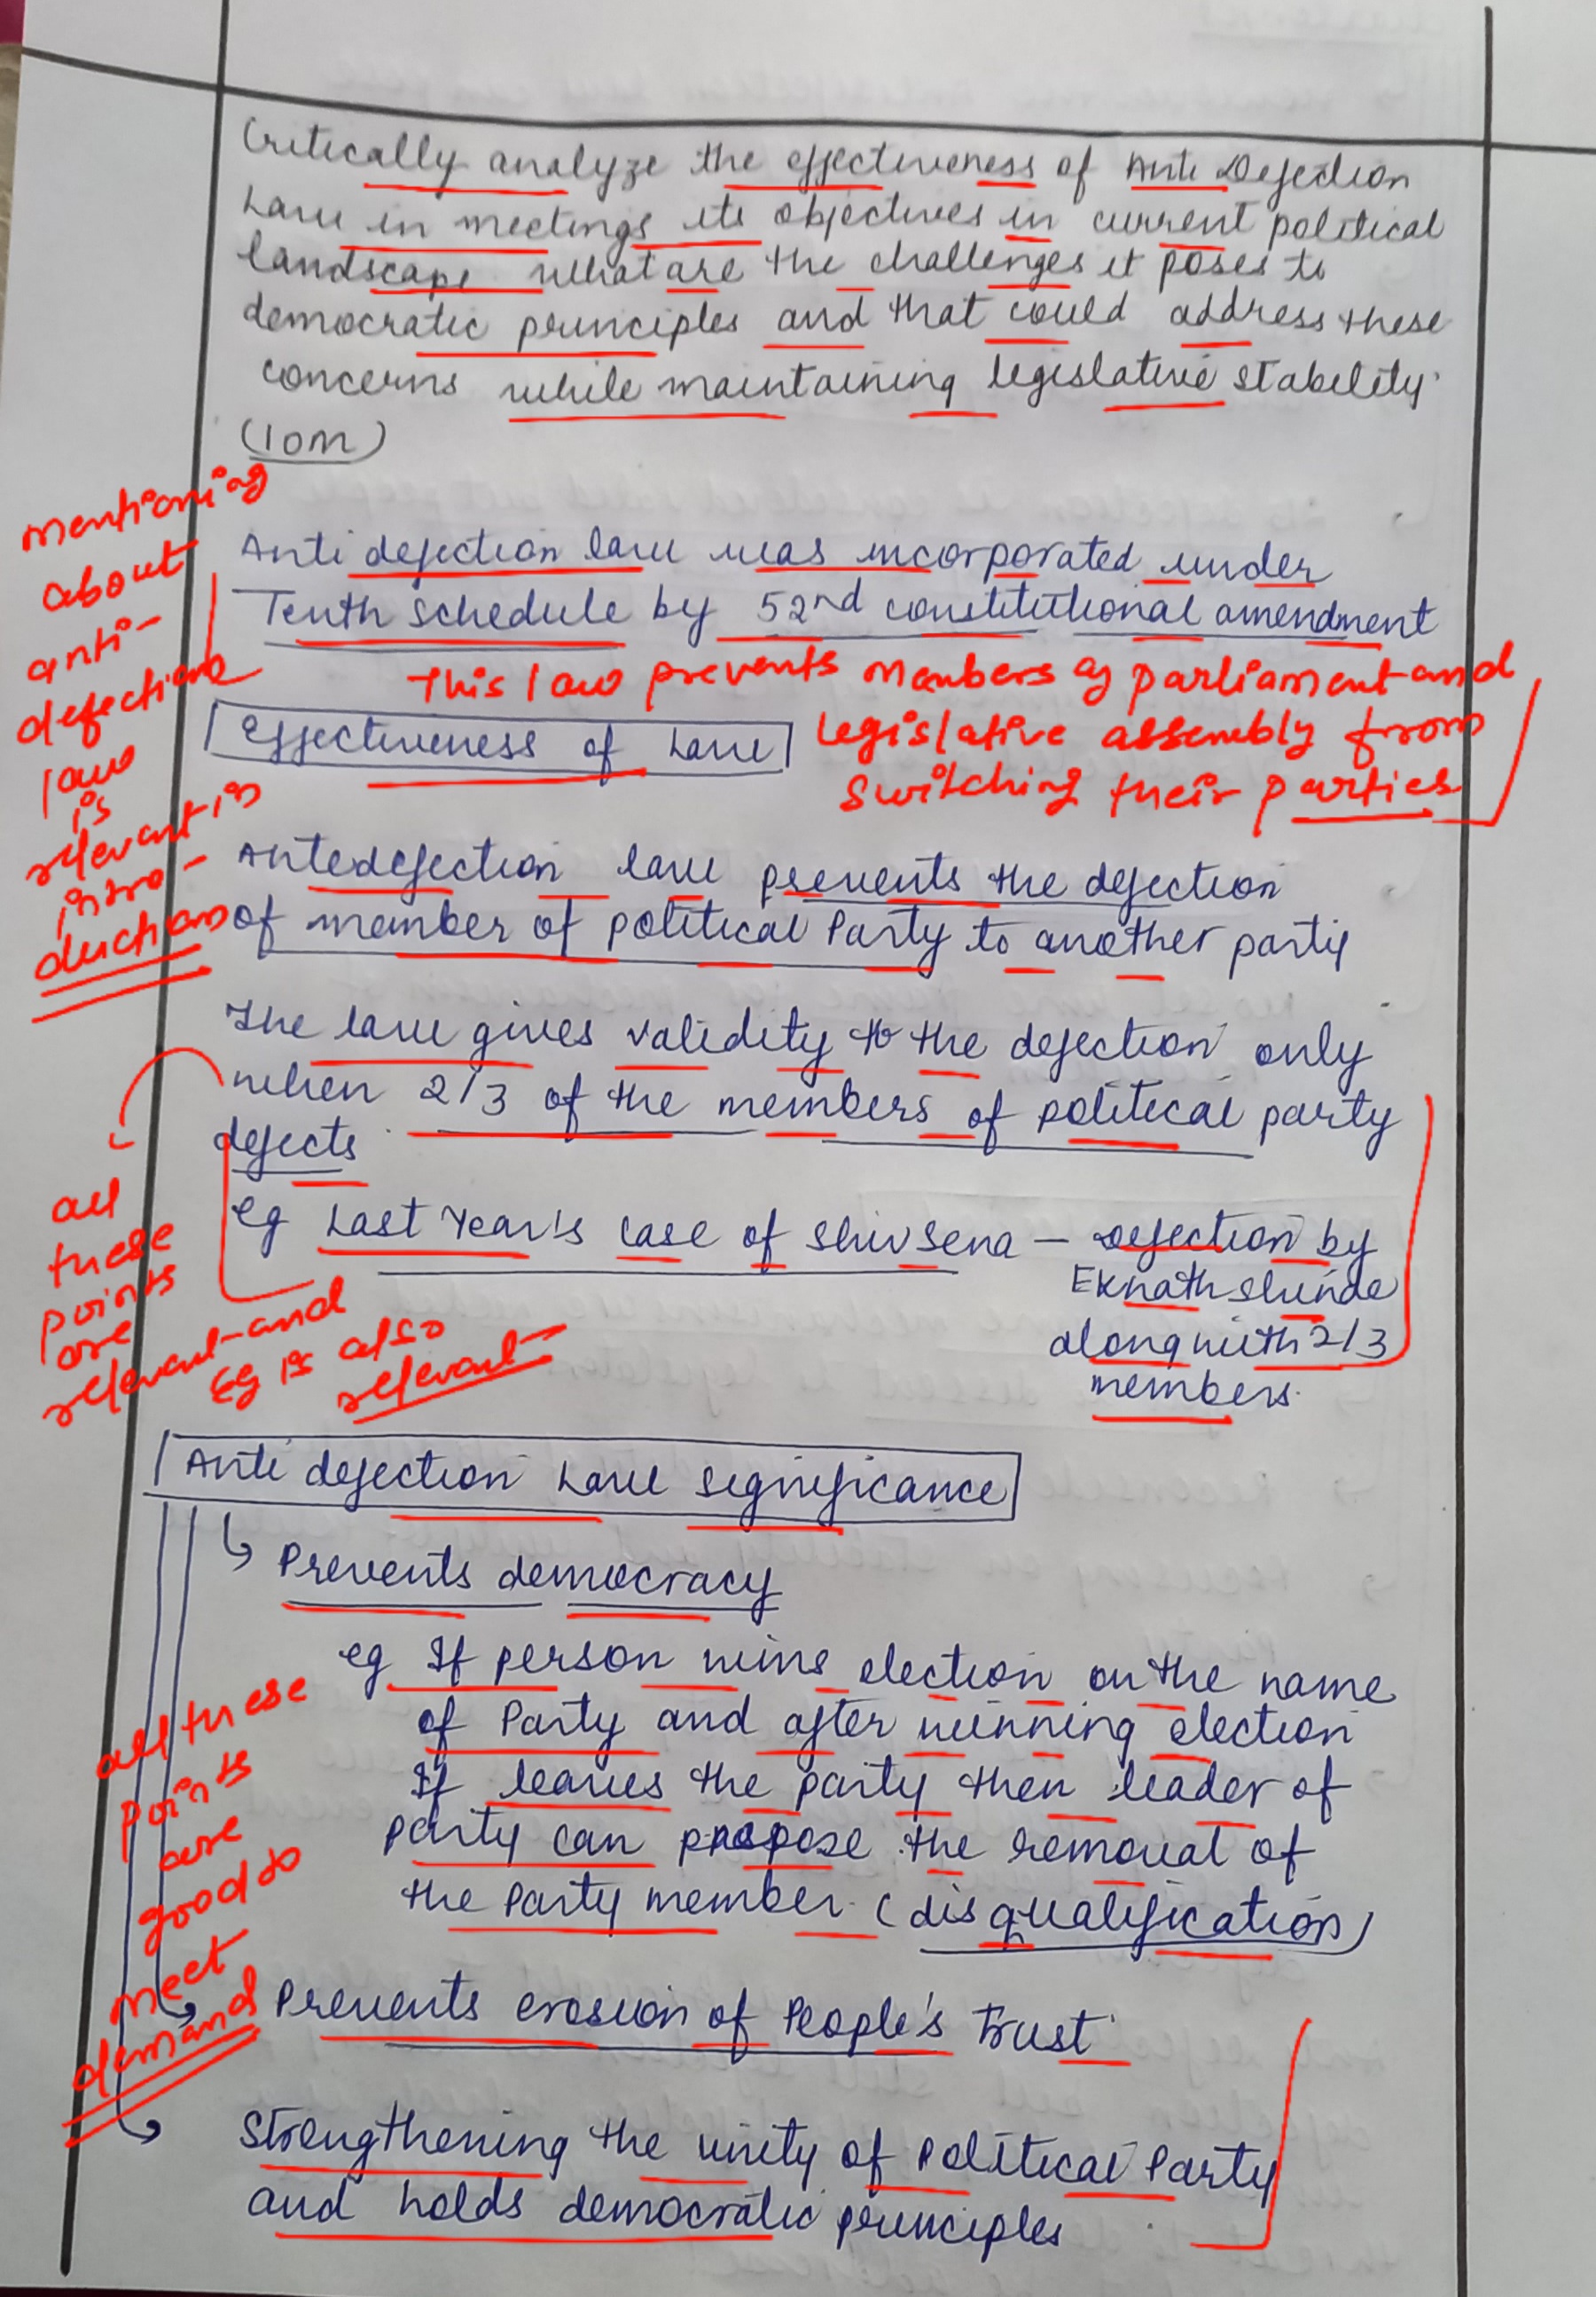 Critically analyze the effectiveness of Anti Defection
Law in meetings its objectives in current political
landscape what are the challenges it poses to
democratic principles and that could address these
concerns while maintaining legislative stability.
(10m)
mentioning
about
anti-
defection
law
is
relevant in
intro-
duction
Anti defection law was incorporated under
Tenth Schedule by 52nd constitutional amendment
This law prevents members of parliament and
legislative assembly from
switching their parties
Effectiveness of Law
Antedefection law prevents the defection
of member of political Party to another party
The law gives validity to the defection only
when 2/3 of the members of political party
defects.
eg Last Year's case of ShivSena – Defection by
Eknath Shinde
along with 2/3
members.
all
these
points
are
relevant and
Eg is also
relevant
Anti defection Law Significance
Prevents democracy
eg If person wins election on the name
of Party and after winning election
If leaves the party then leader of
party can propose the removal of
the Party member. (disqualification)
all these
points
are
good to
meet
demand
Prevents erosion of People's Trust.
Strengthening the unity of Political Party
and holds democratic principles